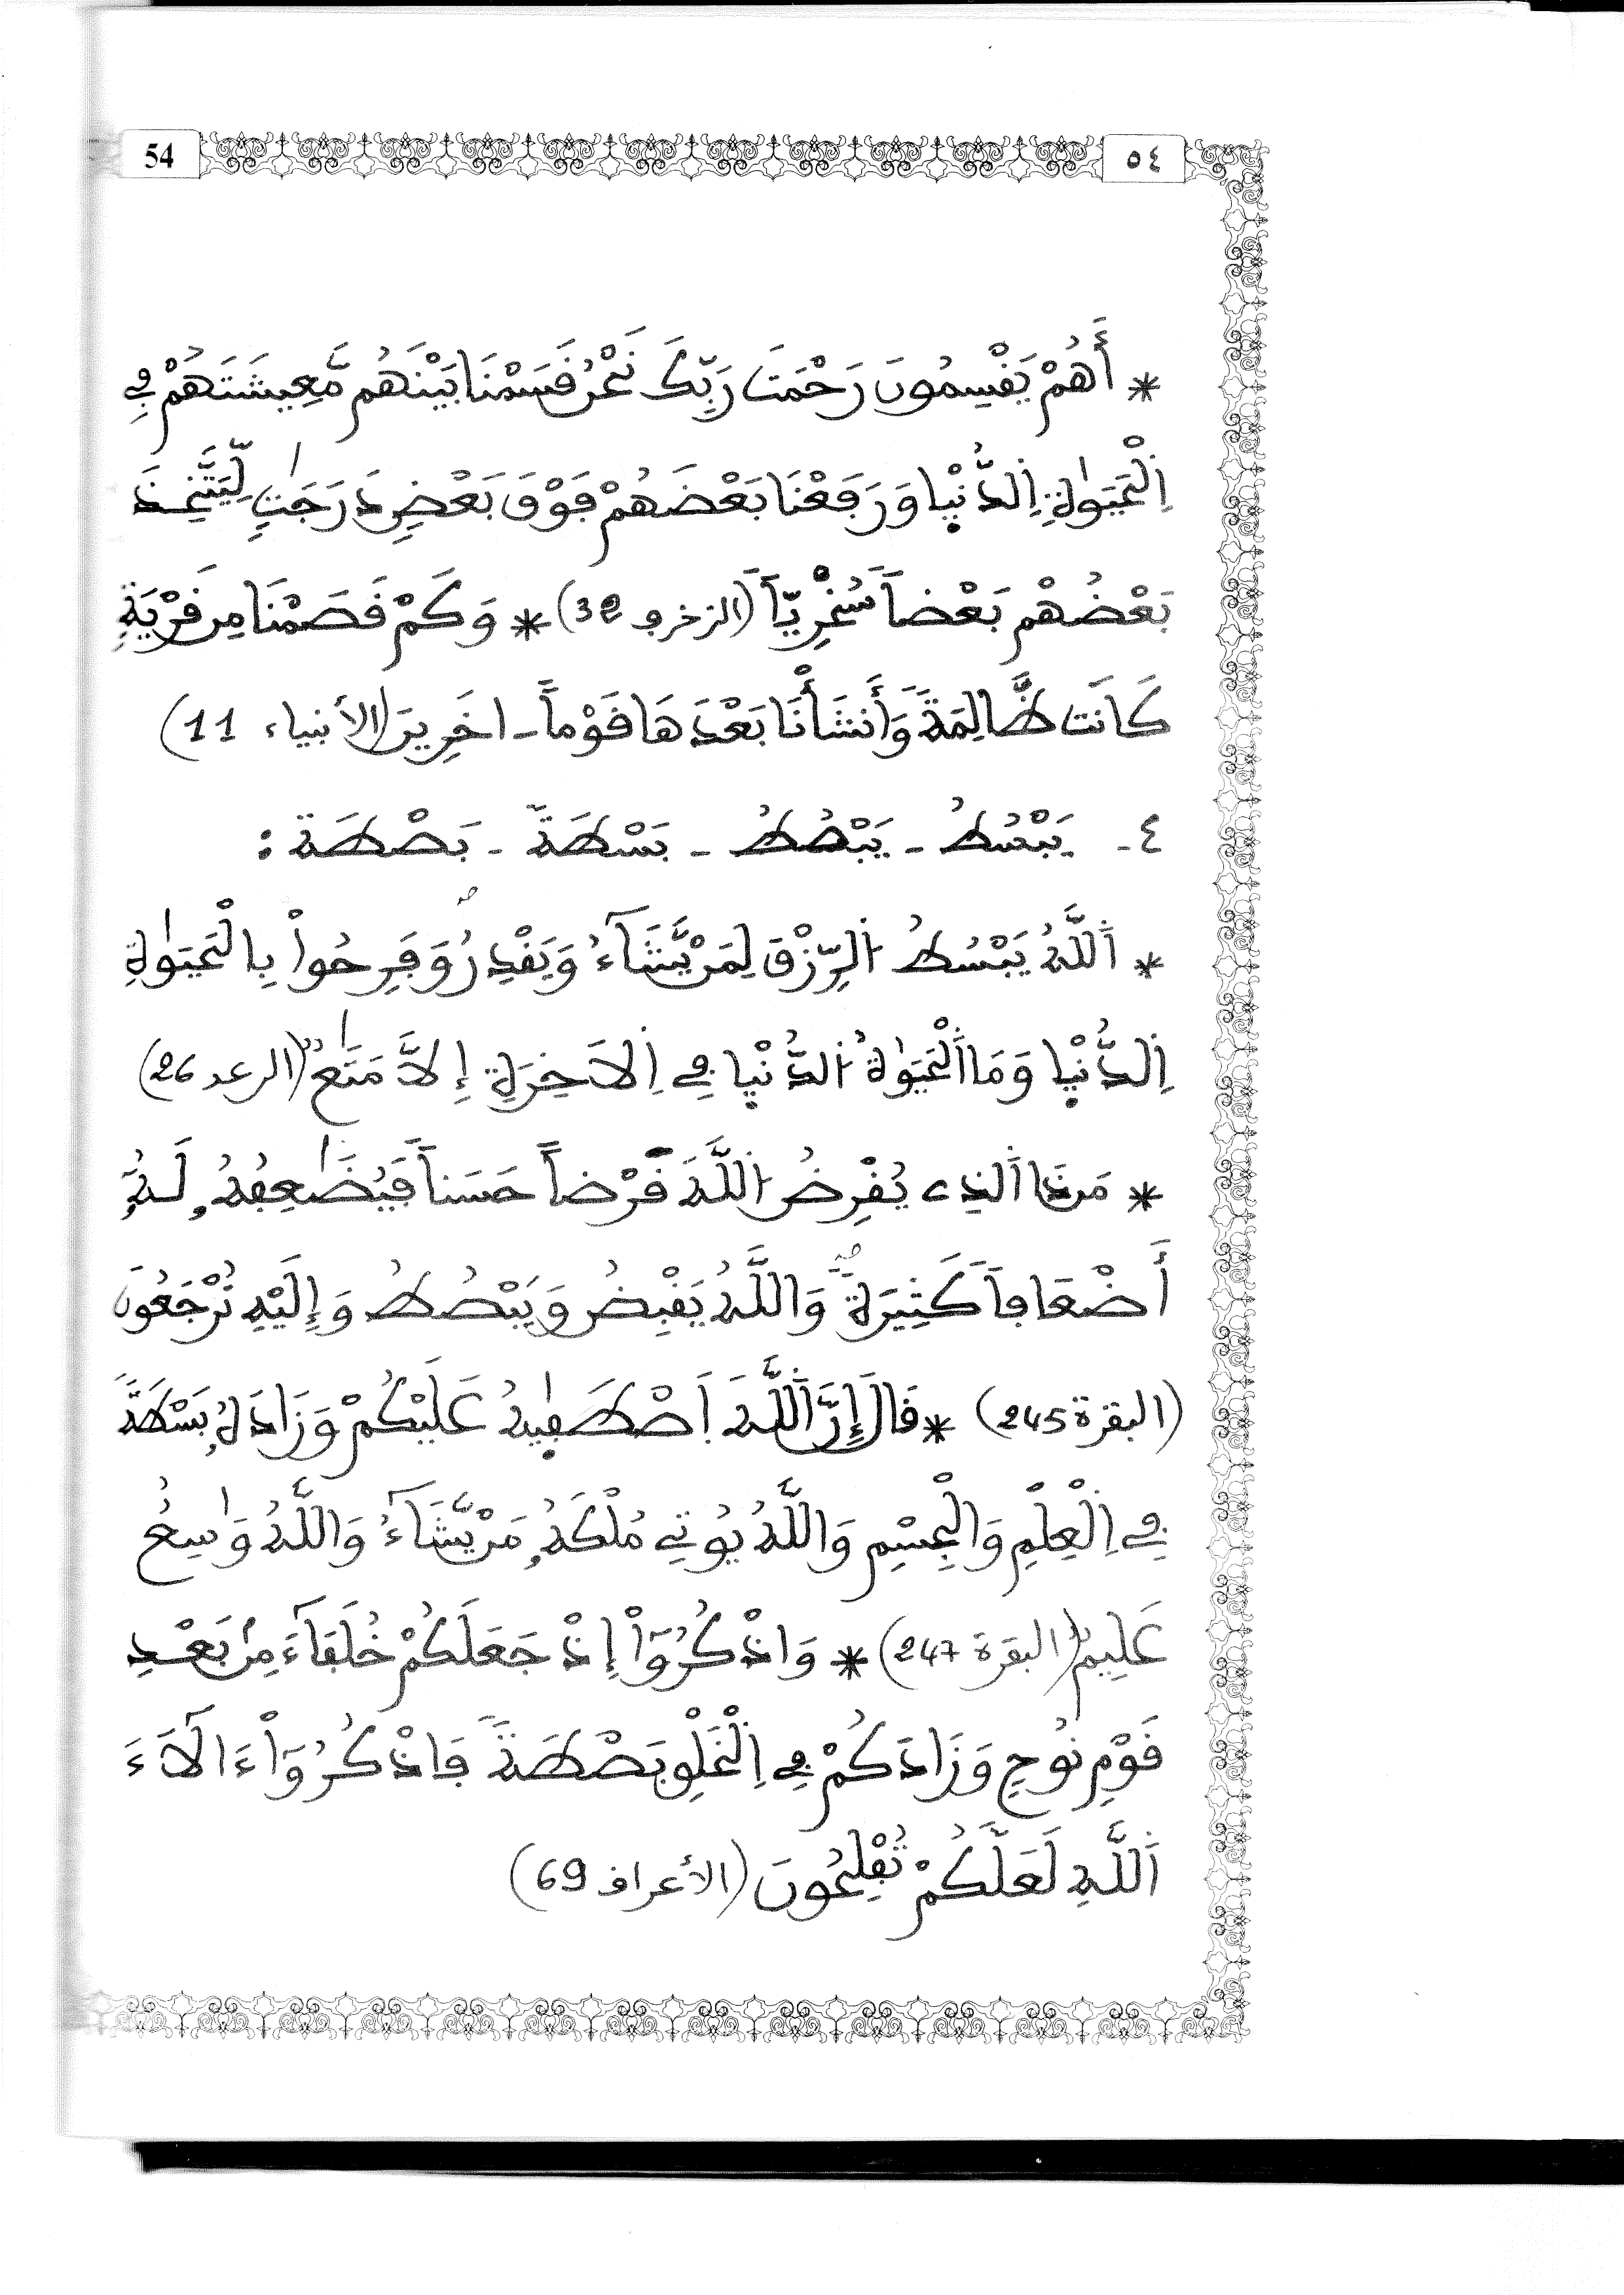 54
٥٤
* أَهُمْ يَقْسِمُونَ رَحْمَتَ رَبِّكَ نَحْنُ قَسَمْنَا بَيْنَهُم مَّعِيشَتَهُمْ فِے
اِ۬لْحَيَوٰةِ اِ۬لدُّنْي۪ا وَرَفَعْنَا بَعْضَهُمْ فَوْقَ بَعْضٖ دَرَجَٰتٖ لِّيَتَّخِذَ
بَعْضُهُم بَعْضاٗ سُخْرِيّاٗ (الزخرف 32) * وَكَمْ قَصَمْنَا مِن قَرْيَةٖ
كَانَت ظَّالِمَةٗ وَأَنشَأْنَا بَعْدَهَا قَوْماً ـ اخَرِينَ (الأنبياء 11)
٤ - يَبْسُطُ - يَبْصُطُ - بَسْطَةٗ - بَصْطَةٗ :
* اَ۬للَّهُ يَبْسُطُ اُ۬لرِّزْقَ لِمَنْ يَّشَآءُ وَيَقْدِرُ وَفَرِحُواْ بِالْحَيَوٰةِ
اِ۬لدُّنْي۪ا وَمَا اَ۬لْحَيَوٰةُ اُ۬لدُّنْي۪ا فِے اِ۬لَاخِرَةِ إِلَّا مَتَٰعٞ (الرعد 26)
* مَن ذَا اَ۬لذِے يُقْرِضُ اُ۬للَّهَ قَرْضاً حَسَناٗ فَيُضَٰعِفُهُۥ لَهُۥ
أَضْعَافاٗ كَثِيرَةٗ وَاللَّهُ يَقْبِضُ وَيَبْصُطُ وَإِلَيْهِ تُرْجَعُونَ
(البقرة 245) * قَالَ إِنَّ اَ۬للَّهَ اَ۪صْطَف۪يٰهُ عَلَيْكُمْ وَزَادَهُۥ بَسْطَةٗ
فِے اِ۬لْعِلْمِ وَالْجِسْمِ وَاللَّهُ يُوتِے مُلْكَهُۥ مَنْ يَّشَآءُ وَاللَّهُ وَٰسِعٌ
عَلِيمٞ (البقرة 247) * وَاذْكُرُوٓاْ إِذْ جَعَلَكُمْ خُلَفَآءَ مِنۢ بَعْدِ
قَوْمِ نُوحٖ وَزَادَكُمْ فِے اِ۬لْخَلْقِ بَصْطَةٗ فَاذْكُرُوٓاْ ءَالَآءَ
اَ۬للَّهِ لَعَلَّكُمْ تُفْلِحُونَ (الأعراف 69)